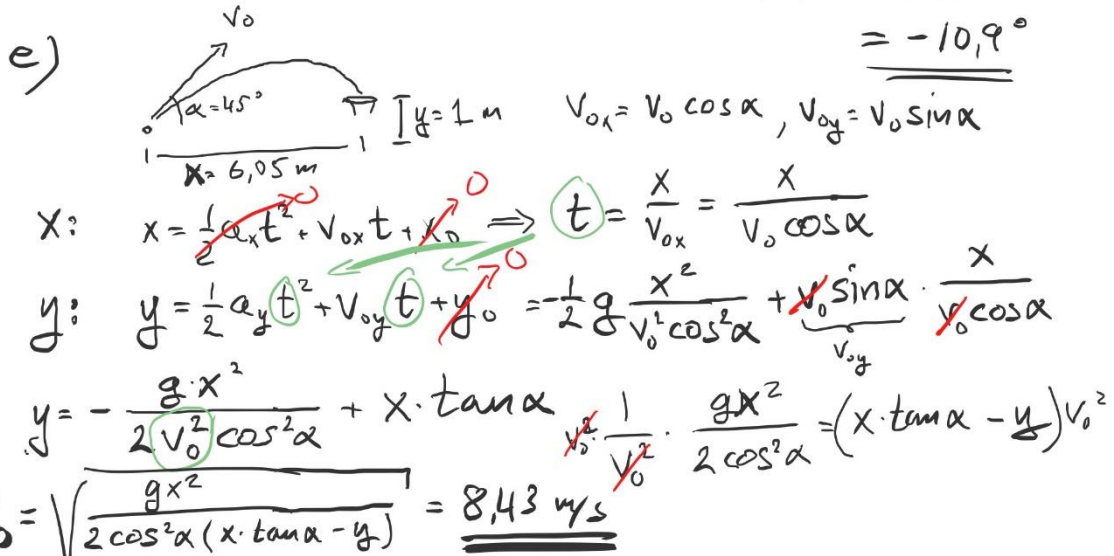 = -10,9°
e)
v₀
α=45°
y=1 m
x= 6,05 m
V₀ₓ= V₀ cosα , V₀y= V₀ sinα
x: x = ½ aₓt² + V₀ₓ t + x₀ ⇒ t = x/V₀ₓ = x/(V₀ cosα)
0 0
y: y = ½ a_y t² + V₀y t + y₀ = -½ g x²/(V₀² cos²α) + V₀ sinα · x/(V₀ cosα)
0
V₀y
y = - g·x²/(2 V₀² cos²α) + x·tanα
V₀² · 1/V₀² · gx²/(2 cos²α) = (x·tanα - y) V₀²
₀ = √(gx²/(2cos²α (x·tanα - y))) = 8,43 m/s